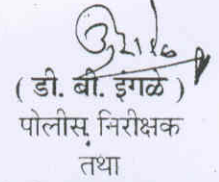 ( डी. बी. इंगळे )
पोलीस निरीक्षक
तथा